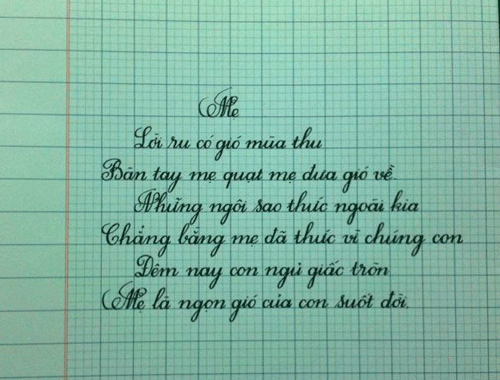 Mẹ
Lời ru có gió mùa thu
Bàn tay mẹ quạt mẹ đưa gió về.
Những ngôi sao thức ngoài kia
Chẳng bằng mẹ đã thức vì chúng con
Đêm nay con ngủ giấc tròn
Mẹ là ngọn gió của con suốt đời.